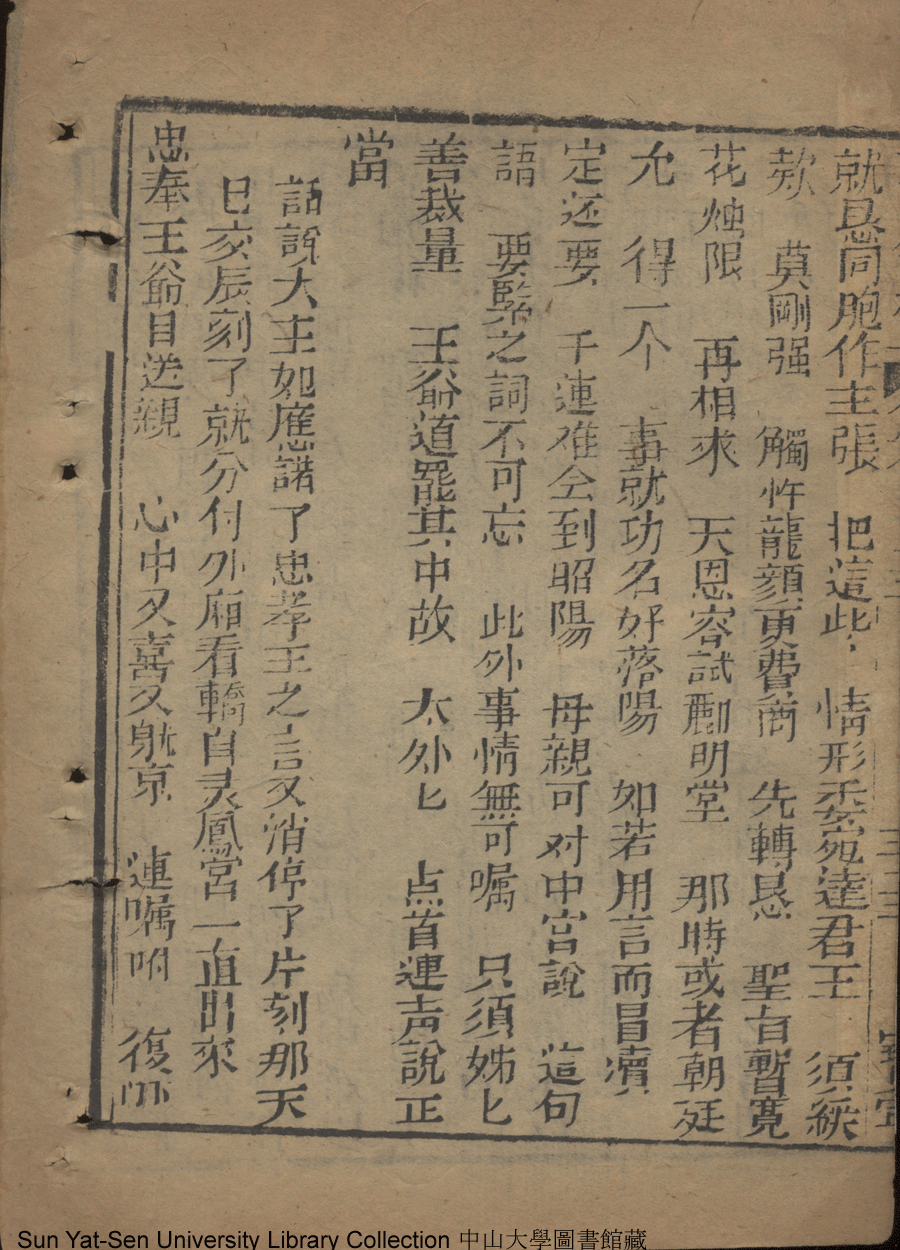 就恳同胞作主張　把這些　情形委宛達君王　須緩
欵　莫剛强　觸忤龍顔更費商　先轉恳　聖旨暫寬
花烛限　再相求　天恩容試酈明堂　那時或者朝廷
允　得一个　事就功名好落陽　如若用言而冒瀆
定还要　千連难会到昭陽　母親可对中宮說　這句
語　要緊之詞不可忘　此外事情無可嘱　只須姊匕
善裁量　王爺道罷其中故　太外匕　点首連声說正
當
話說大王如應諾了忠孝王之言又消停了片刻那天
已亥辰刻了就分付外廂看轎自灵鳳宮一直出來
忠奉王爺目送親　心中又喜又躭京　連嘱咐　復叮
Sun Yat-Sen University Library Collection 中山大學圖書館藏